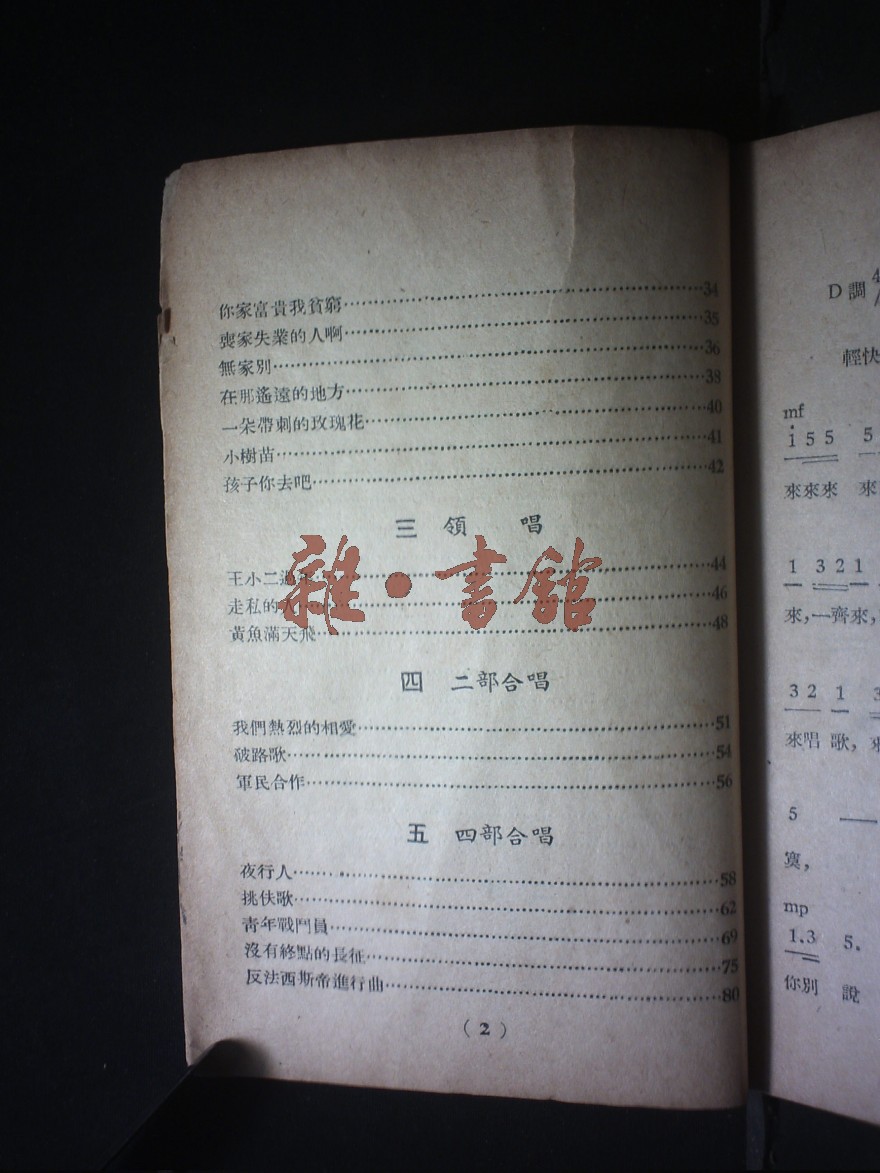 你家富貴我貧窮……34
喪家失業的人啊……35
無家別……36
在那遙遠的地方……38
一朵帶刺的玫瑰花……40
小樹苗……41
孩子你去吧……42
三 領 唱
王小二過年……44
走私的人……46
黃魚滿天飛……48
四 二部合唱
我們熱烈的相愛……51
破路歌……54
軍民合作……56
五 四部合唱
夜行人……58
挑伕歌……62
青年戰鬥員……69
沒有終點的長征……75
反法西斯帝進行曲……80
(2)
雜·書館
D調 4/
輕快
mf
i 5 5 5
來來來 來
1 3 2 1
來,一齊來,
3 2 1 3
來唱 歌,來
5 —
寞,
mp
1.3 5.
你別 說